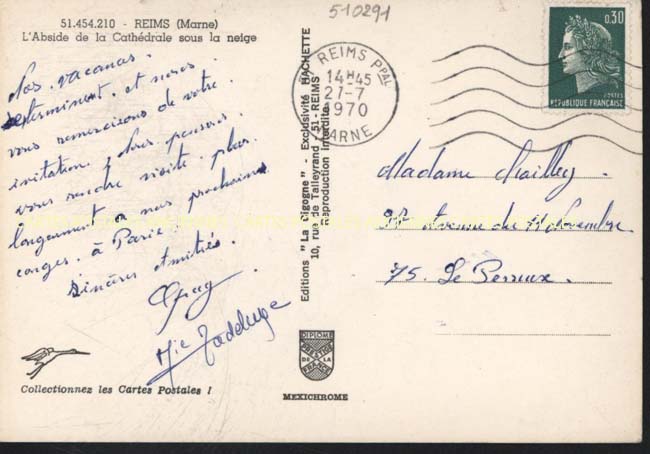 51.454.210 - REIMS (Marne)
L'Abside de la Cathédrale sous la neige
510291
Nos vacances
se terminent, et nous
vous remercions de votre
invitation, nous pensons
vous rendre visite plus
longuement à nos prochains
congés, à Paris.
Sincères Amitiés.
Mie
Collectionnez les Cartes Postales !
Editions "La Cigogne" - Exclusivité HACHETTE
10, rue de Talleyrand - 51 - REIMS
Reproduction interdite
DIPLOME
PRESTIGE
DE LA
FRANCE
MEXICHROME
REIMS PPAL
14H45
27-7
1970
MARNE
0,30
POSTES
REPUBLIQUE FRANÇAISE
Madame Mailley
Avenue du 11 Novembre
75. Le Perreux.